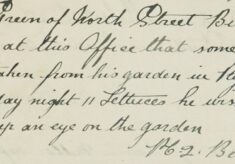 Green of North Street Be
at this Office that some
taken from his garden in
day night 11 Lettuces he
up an eye on the garden